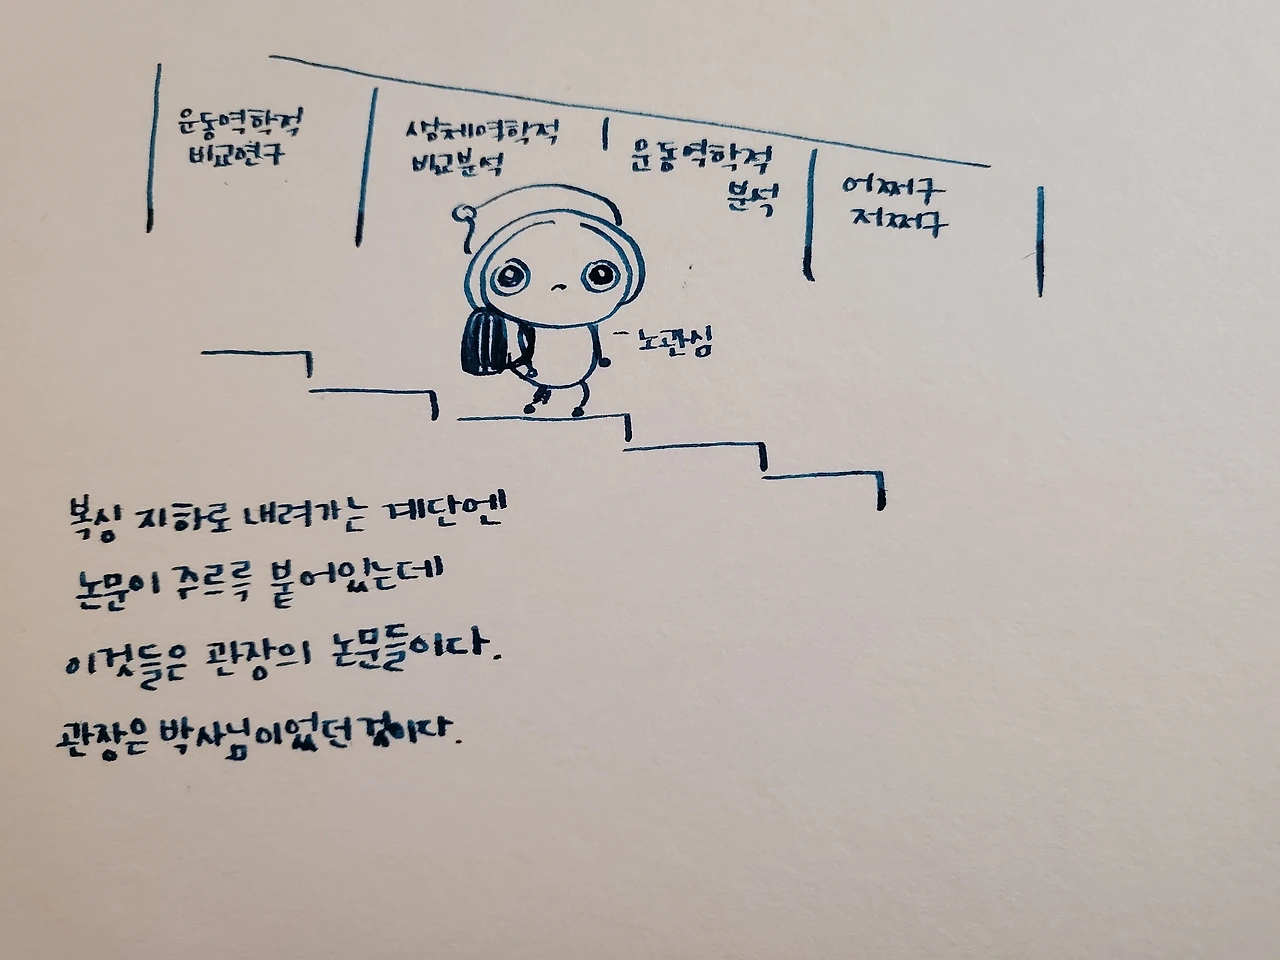 운동역학적
비교연구
상체역학적
비교분석
운동역학적
분석
어쩌구
저쩌구
- 노관심
복싱 지하로 내려가는 계단엔
논문이 주르륵 붙어있는데
이것들은 관장의 논문들이다.
관장은 박사님이었던 것이다.